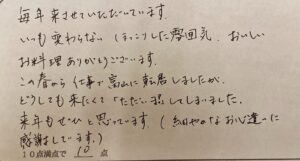 毎年来させていただいています。
いつも変わらない ほっこりした雰囲気、おいしい
お料理ありがとうございます。
この春から仕事で富山に転居しましたが、
どうしても来たくて「ただいま」してしまいました。
来年もぜひと思っています。(細やかなお心遣いに
感謝しています。)
10点満点で 10 点